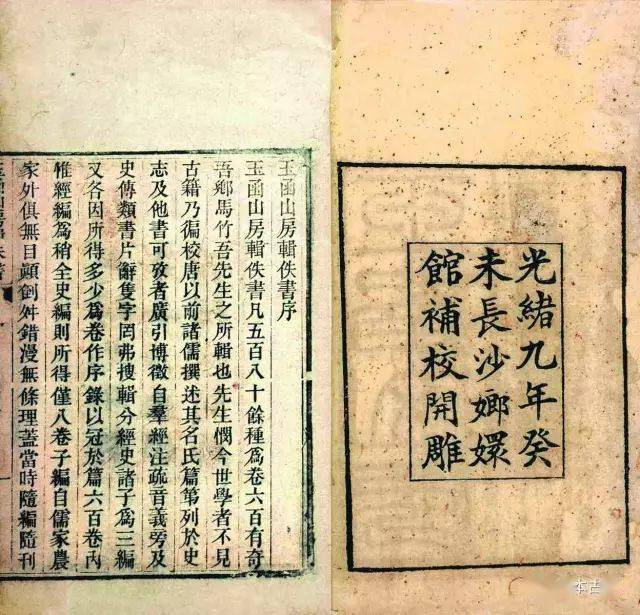 光緒九年癸
未長沙嫏嬛
館補校開雕
玉函山房輯佚書序
玉函山房輯佚書凡五百八十餘種為卷六百有奇
吾鄉馬竹吾先生之所輯也先生憫今世學者不見
古籍乃徧校唐以前諸儒撰述其名氏篇第列於史
志及他書可攷者廣引博徵自羣經注疏音義旁及
史傳類書片辭隻字罔弗搜輯分經史諸子為三編
又各因所得多少為卷作序錄以冠於篇六百卷內
惟經編為稍全史編則所得僅八卷子編自儒家農
家外俱無目顛倒舛錯漫無條理蓋當時隨編隨刊